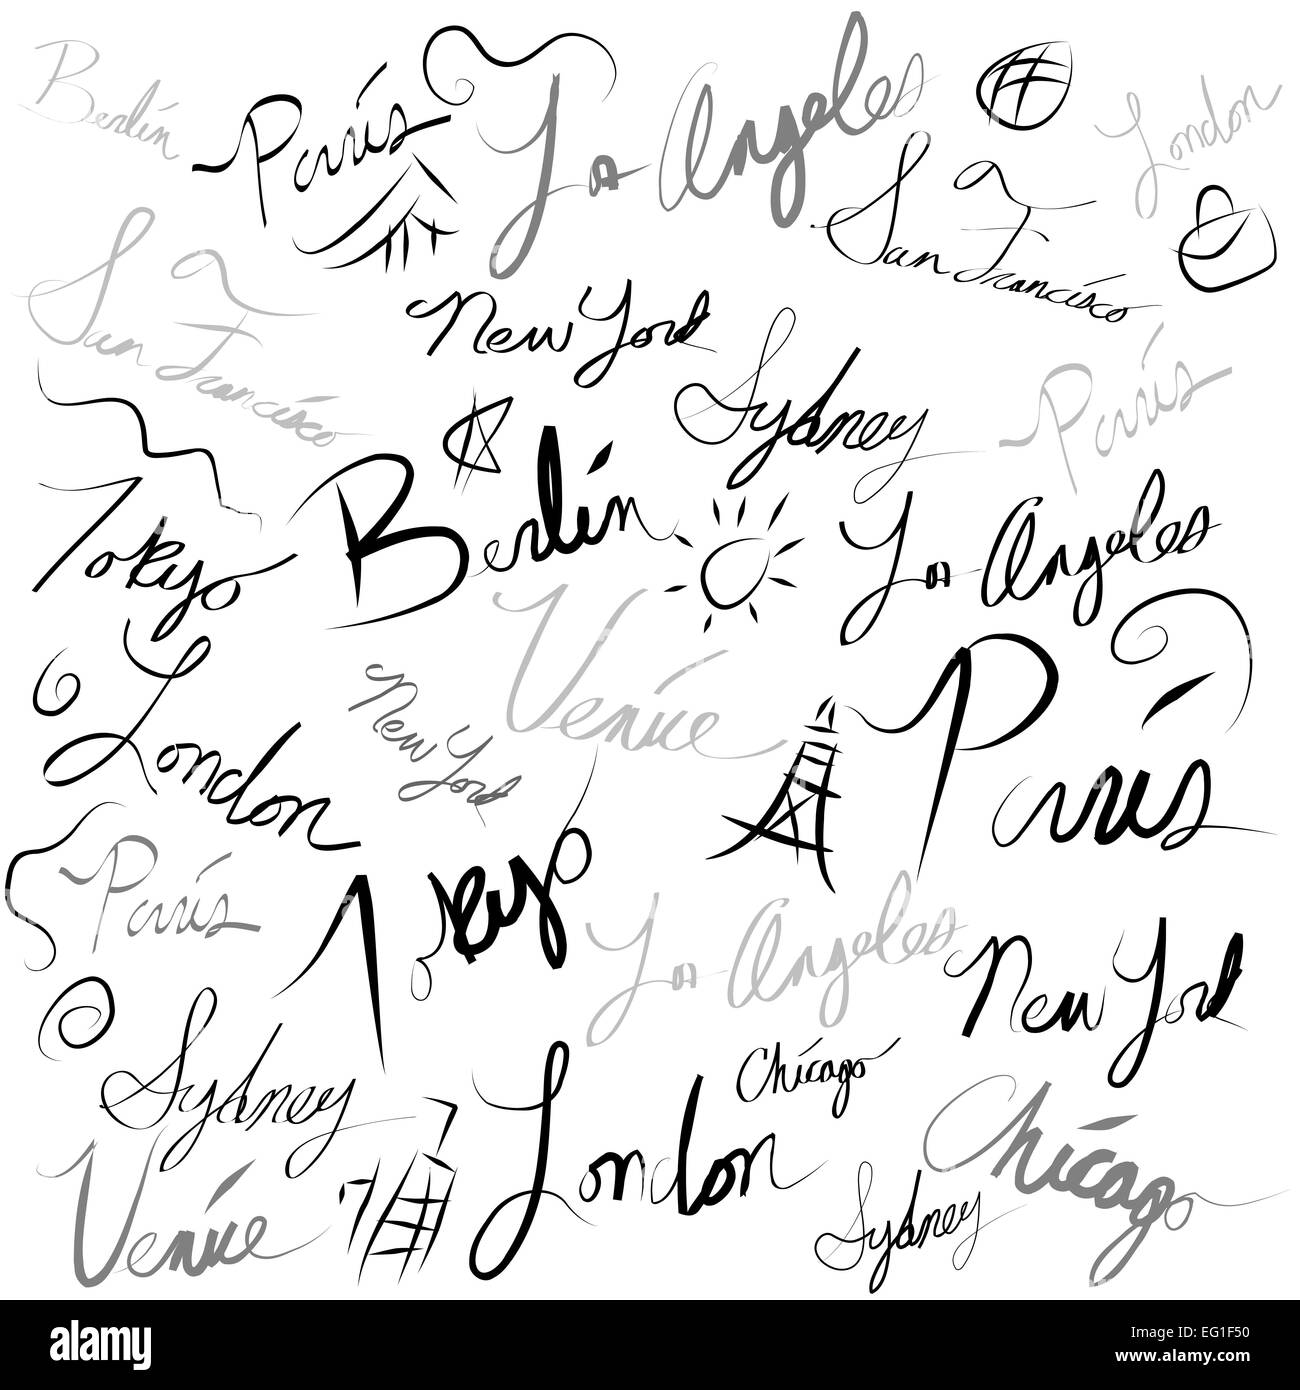 Berlin
Paris
Los Angeles
London
San Francisco
San Francisco
New York
Sydney
Paris
Tokyo
Berlin
Los Angeles
London
New York
Venice
Paris
Paris
Tokyo
Los Angeles
New York
Sydney
London
Chicago
Chicago
Venice
Sydney
alamy
Image ID: EG1F50
www.alamy.com